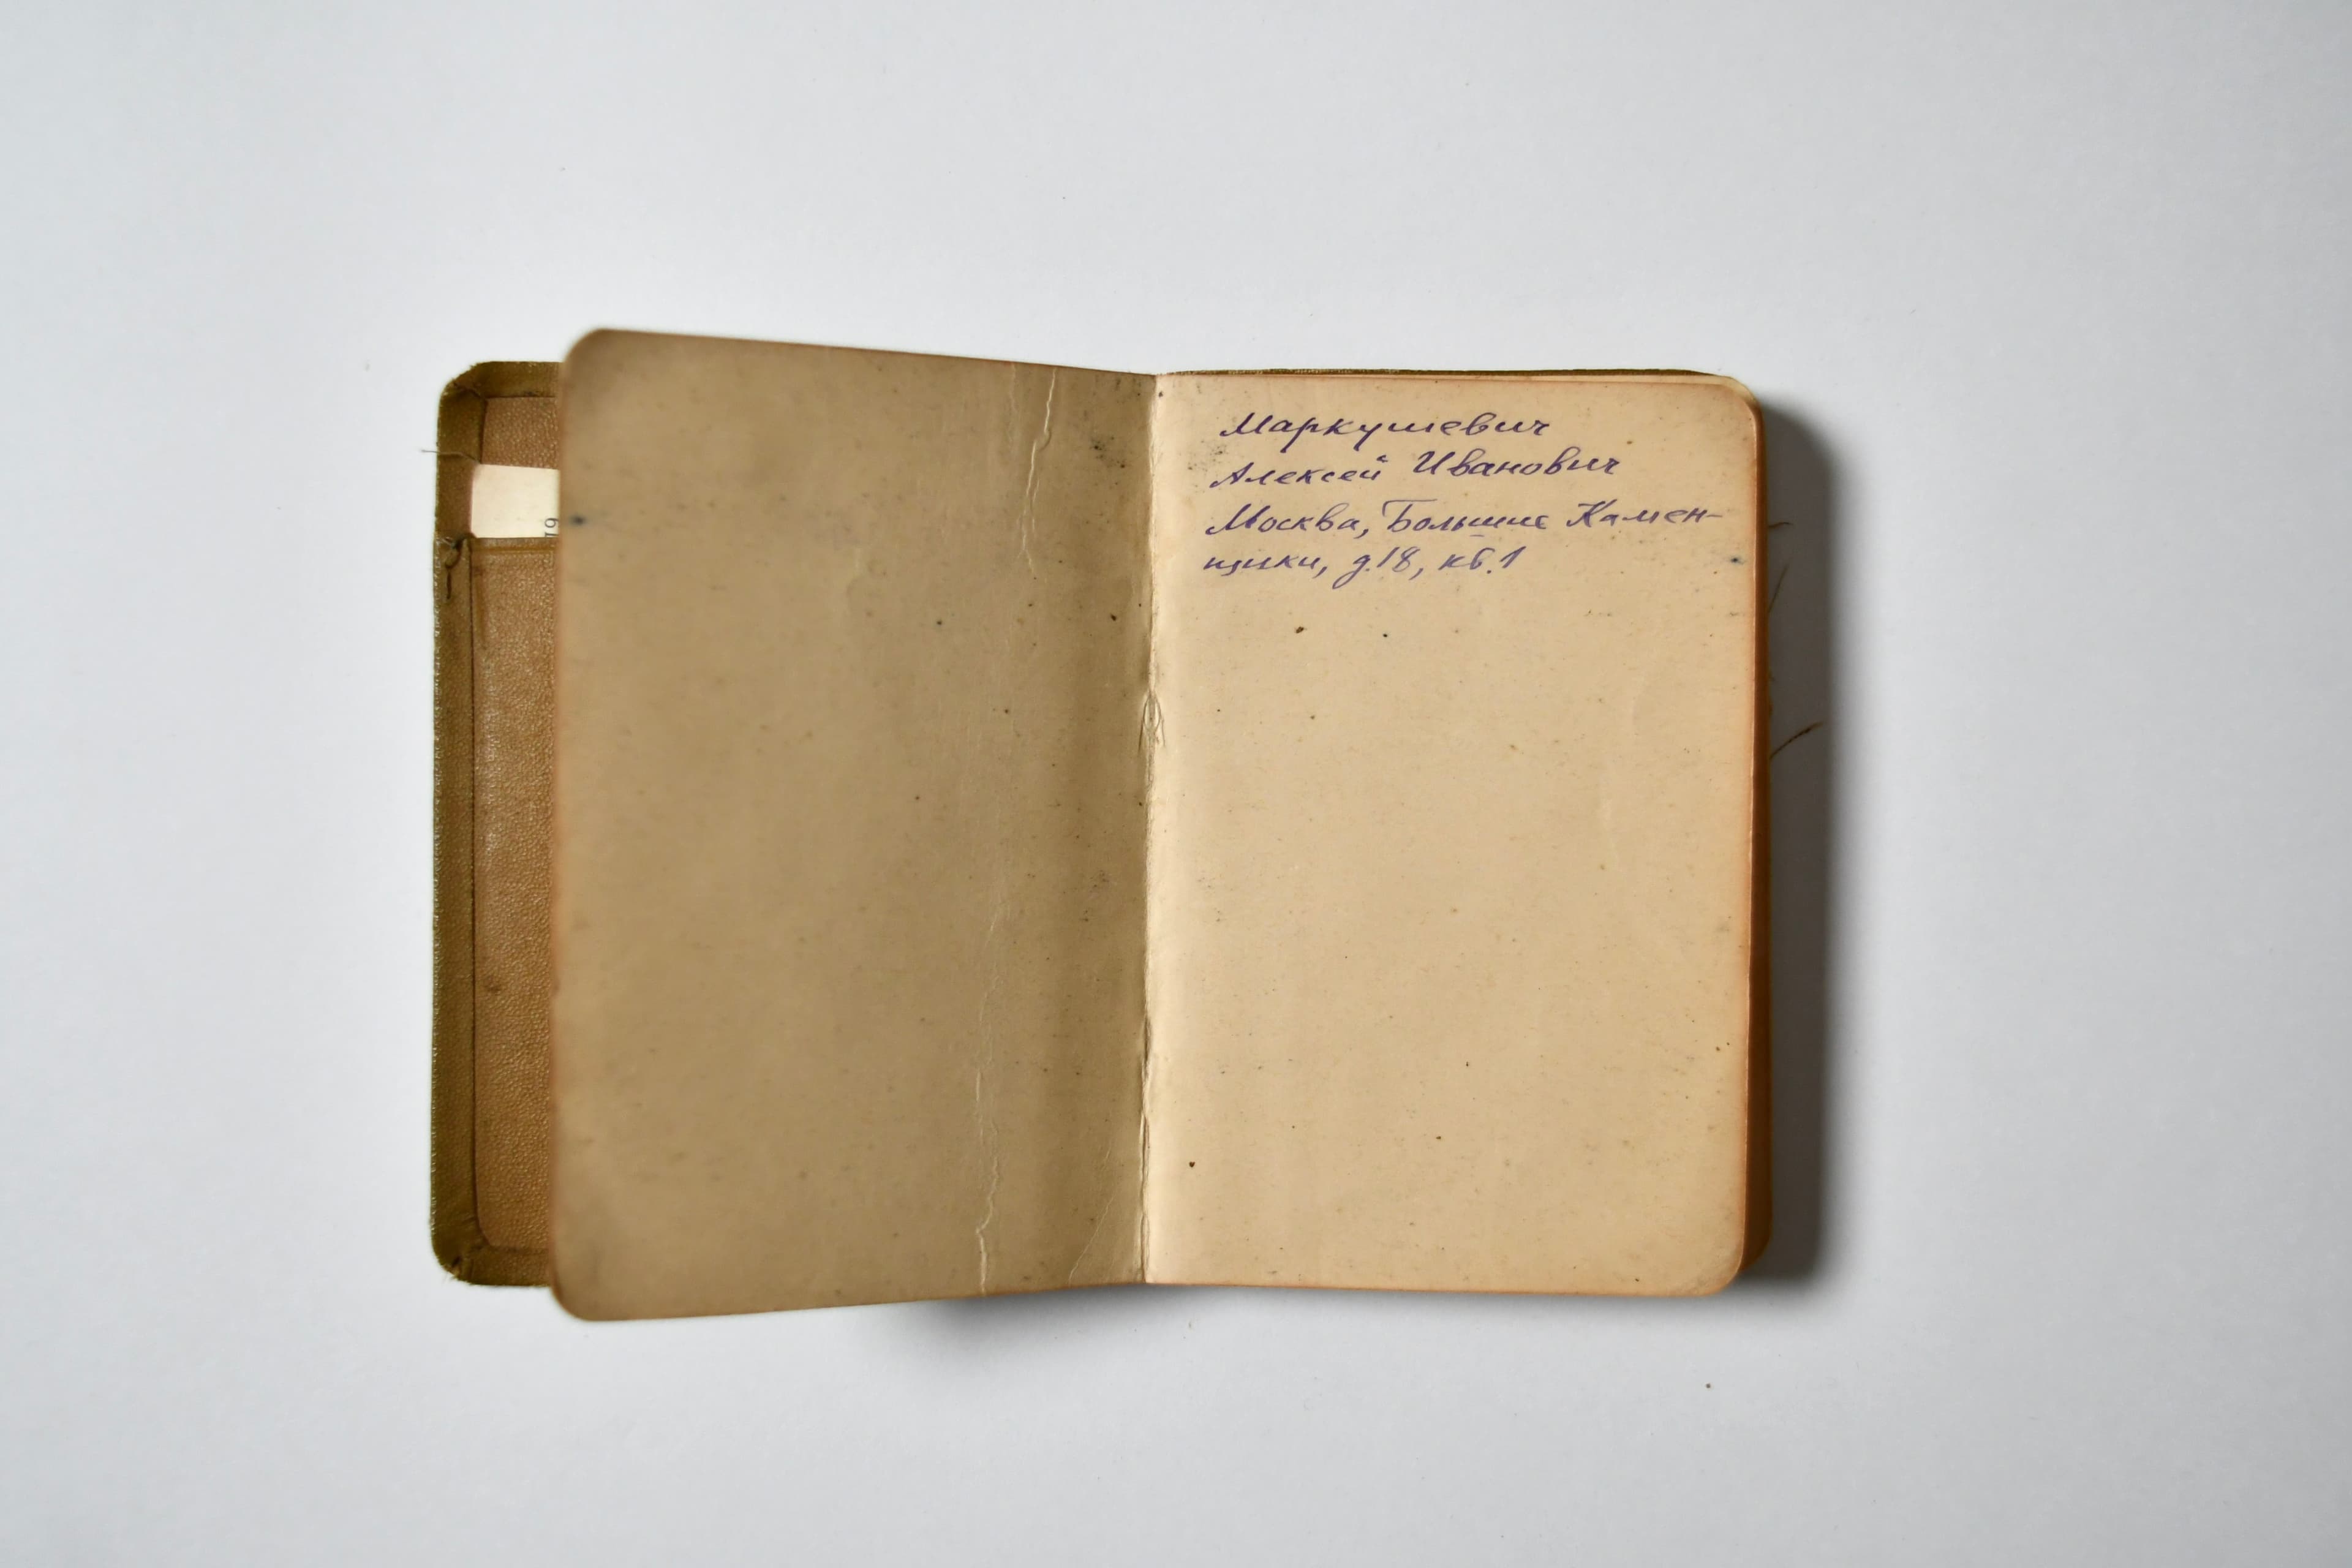 19
Маркушевич
Алексей Иванович
Москва, Большие Камен-
щики, д.18, кв.1